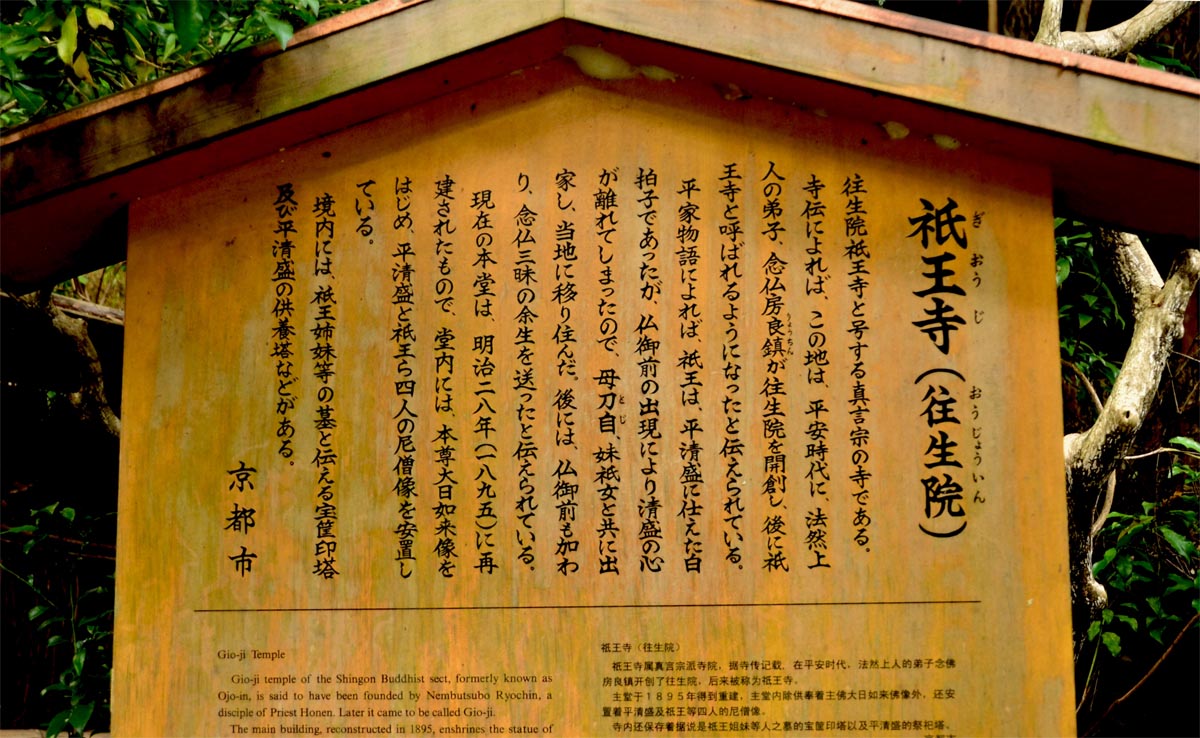 祇王寺(往生院)
ぎおうじ
おうじょういん
往生院祇王寺と号する真言宗の寺である。
寺伝によれば、この地は、平安時代に、法然上
人の弟子、念仏房良鎮が往生院を開創し、後に祇
りょうちん
王寺と呼ばれるようになったと伝えられている。
平家物語によれば、祇王は、平清盛に仕えた白
拍子であったが、仏御前の出現により清盛の心
が離れてしまったので、母刀自、妹祇女と共に出
とじ
家し、当地に移り住んだ。後には、仏御前も加わ
り、念仏三昧の余生を送ったと伝えられている。
現在の本堂は、明治二八年(一八九五)に再
建されたもので、堂内には、本尊大日如来像を
はじめ、平清盛と祇王ら四人の尼僧像を安置し
ている。
境内には、祇王姉妹等の墓と伝える宝筐印塔
及び平清盛の供養塔などがある。
京都市
Gio-ji Temple
Gio-ji temple of the Shingon Buddhist sect, formerly known as
Ojo-in, is said to have been founded by Nembutsubo Ryochin, a
disciple of Priest Honen. Later it came to be called Gio-ji.
The main building, reconstructed in 1895, enshrines the statue of
祇王寺(往生院)
祇王寺属真言宗派寺院,据寺传记载,在平安时代,法然上人的弟子念佛
房良镇开创了往生院,后来被称为祇王寺。
主堂于1895年得到重建,主堂内除供奉着主佛大日如来佛像外,还安
置着平清盛及祇王等四人的尼僧像。
寺内还保存着据说是祇王姐妹等人之墓的宝箧印塔以及平清盛的祭祀塔。